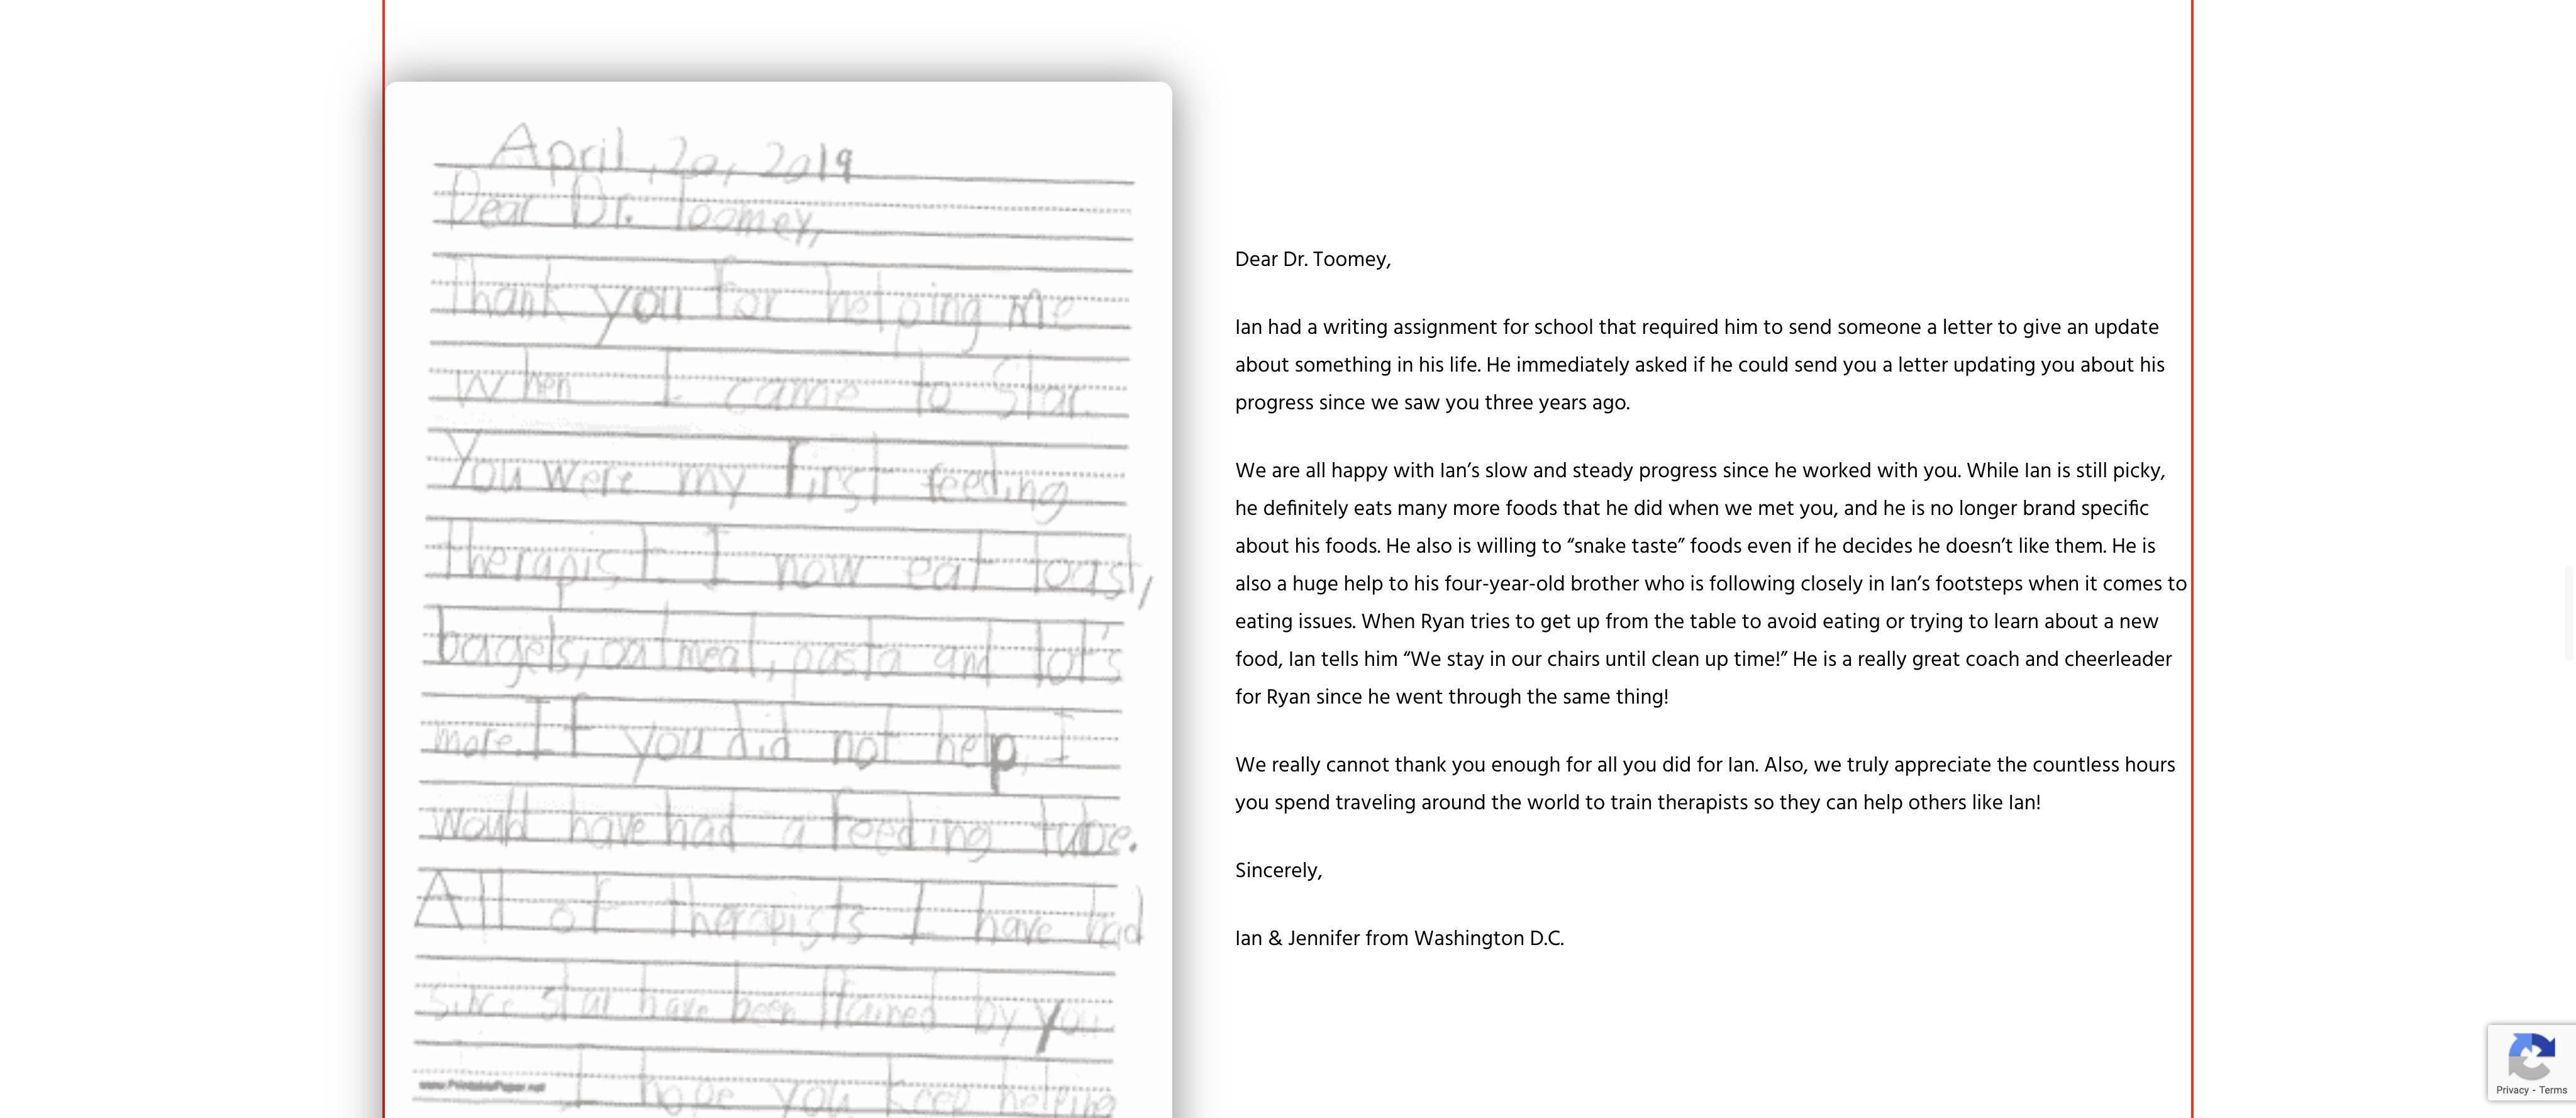 April, 20, 2019
Dear Dr. Toomey,
Thank you for helping me
When I came to Star.
You were my first feeding
therapist. I now eat toast,
bagels, oatmeal, pasta and lot's
more. If you did not help, I
would have had a feeding tube.
All of therapists I have had
since star have been trained by you
I hope you keep helping
www.PrintablePaper.net
Dear Dr. Toomey,
Ian had a writing assignment for school that required him to send someone a letter to give an update
about something in his life. He immediately asked if he could send you a letter updating you about his
progress since we saw you three years ago.
We are all happy with Ian’s slow and steady progress since he worked with you. While Ian is still picky,
he definitely eats many more foods that he did when we met you, and he is no longer brand specific
about his foods. He also is willing to “snake taste” foods even if he decides he doesn’t like them. He is
also a huge help to his four-year-old brother who is following closely in Ian’s footsteps when it comes to
eating issues. When Ryan tries to get up from the table to avoid eating or trying to learn about a new
food, Ian tells him “We stay in our chairs until clean up time!” He is a really great coach and cheerleader
for Ryan since he went through the same thing!
We really cannot thank you enough for all you did for Ian. Also, we truly appreciate the countless hours
you spend traveling around the world to train therapists so they can help others like Ian!
Sincerely,
Ian & Jennifer from Washington D.C.
Privacy - Terms